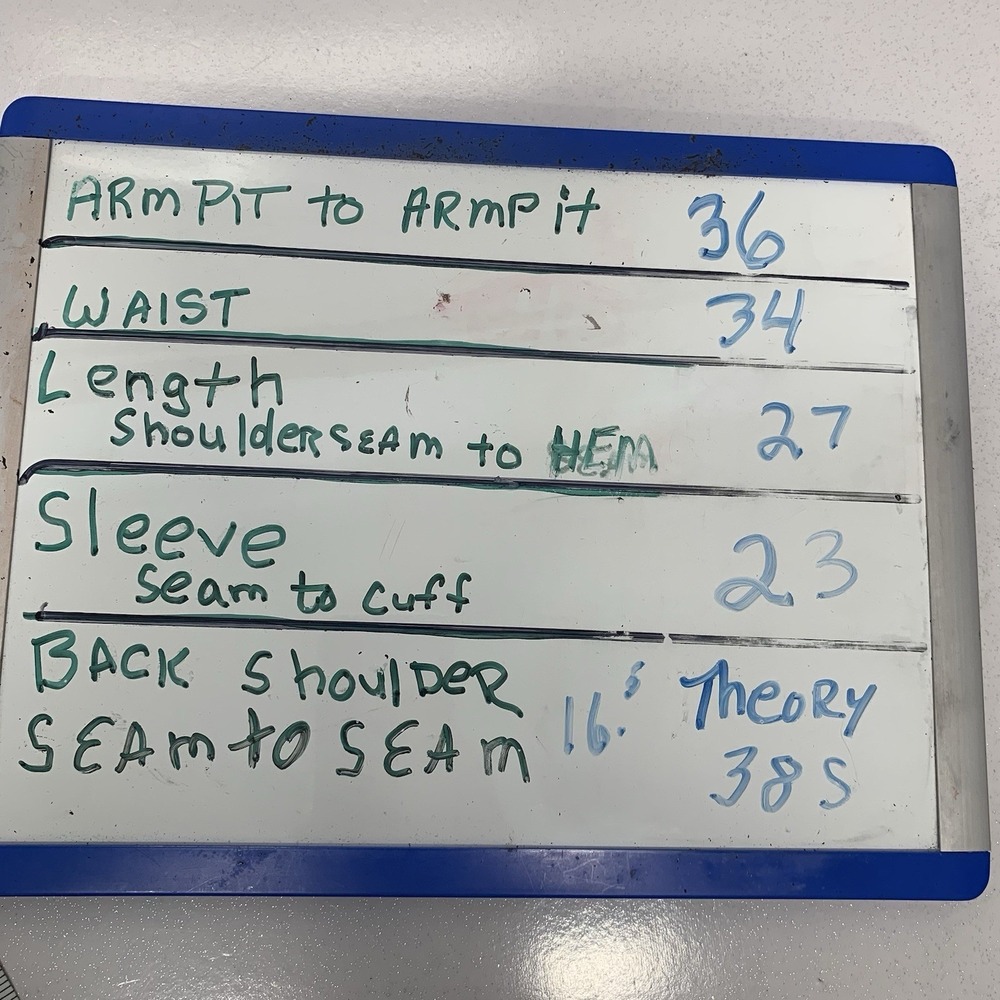 ARmPiT to ARmPit 36
WAIST 34
Length
ShoulderSEAm to HEM 27
Sleeve
Seam to cuff 23
BACK ShoulDER
SEAm to SEAm 16.5 TheoRy
38S